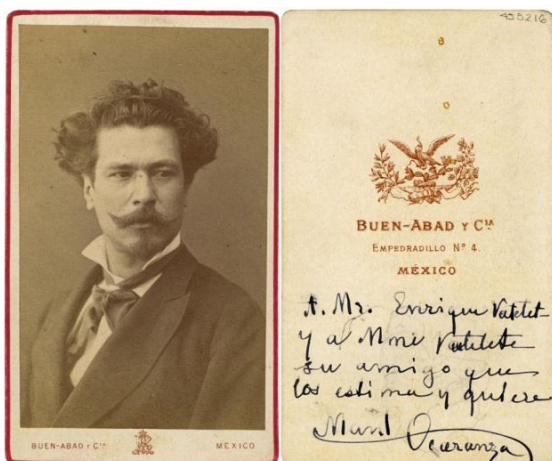 BUEN-ABAD Y Cᴵᴬ
MEXICO
455216
BUEN-ABAD Y Cᴵᴬ
EMPEDRADILLO Nº 4.
MÉXICO
A. Mr. Enrique Vatelet
y a Mme
su amigo que
los estima y quiere
Manl Ocaranza